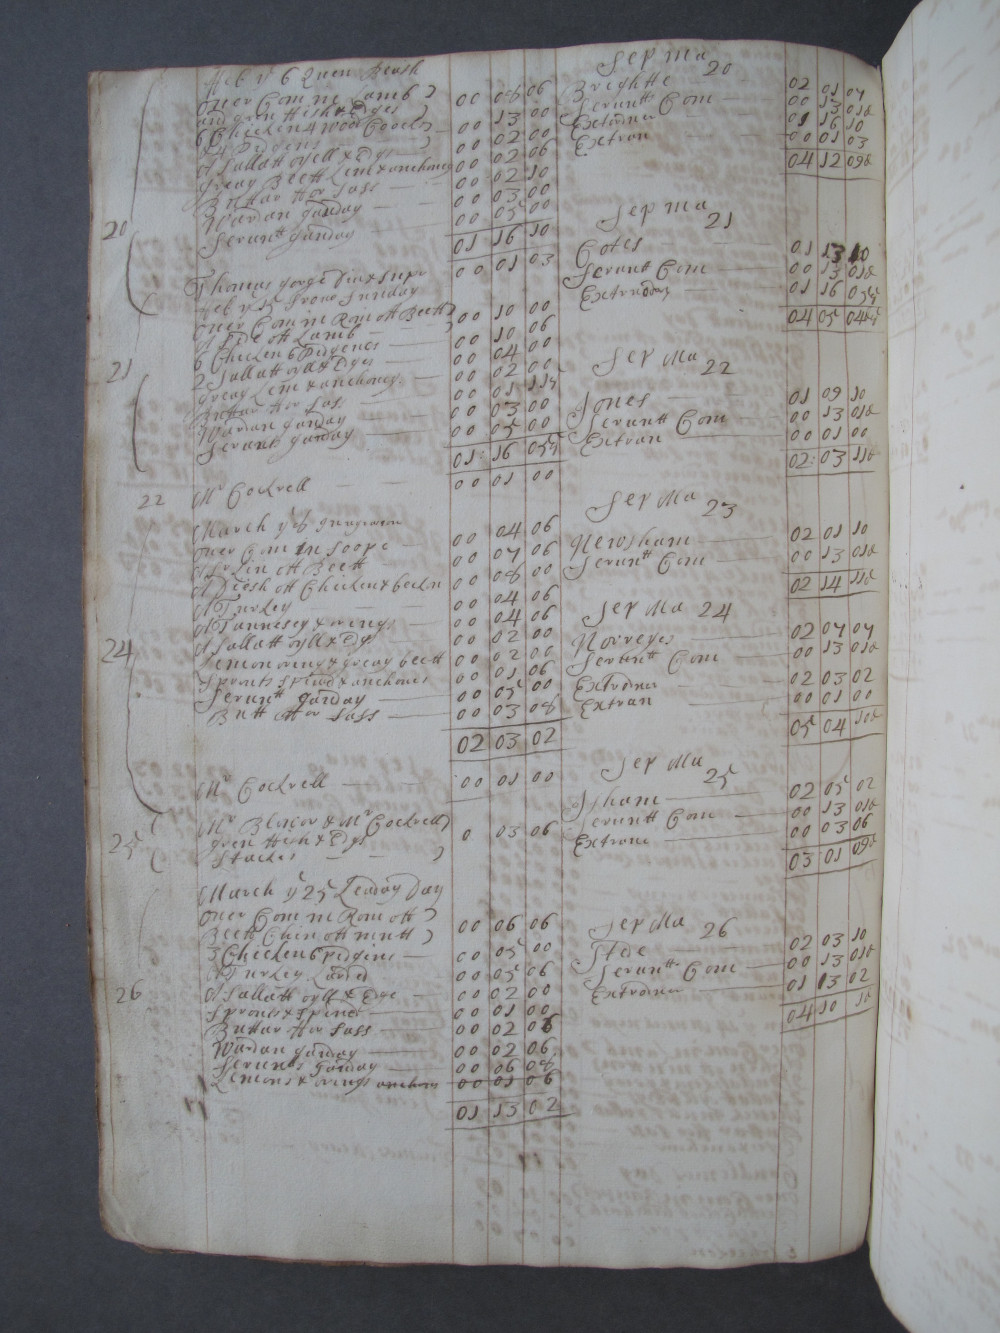 Feb ye 6 Quen Beath
over Com in Lamb )
and gren ffish & Eges )
6 Chicken 4 wood Coocks 00 08 06
4 Pidgens 00 13 00
A Sallatt oyll & Egs 00 02 00
greay Beett Lem & anchoves 00 02 06
Buttar ffor Sass 00 02 10
Wardan garday 00 03 00
Servantt garday 00 05 00
01 16 10
20
Thomas gorge Din & Supr 00 01 03
over Com in Rom off Beeff )
A Side off Lamb 00 10 00
6 Chicken 6 Pidgenes 00 10 06
2 Sallatt oyll & Eges 00 04 00
greay Lem & anchoves 00 02 00
Buttar ffor Sass 00 01 11
Wardan garday 00 03 00
Servant garday 00 05 00
01 16 05
21
22 Mr Cockrell 00 01 00
over Com in Soope 00 04 06
A Surlin off Beeff 00 07 06
A Diesh off Chicken & becken 00 08 00
A Turkey 00 04 06
A Tannesey & oringes 00 04 06
A Sallatt oyll & Egs 00 02 00
Lemon oring & greay beett 00 02 00
Sprouts Spinag & anchoves 00 01 06
Servantt garday 00 05 00
Butt ffor Sass 00 03 08
02 03 02
24
Mr Cockrell 00 01 00
Mr Blower & Mr Cockrell )
gren ffish & Egs 0 03 06
Stackes )
25
March ye 25 Leaday Day
over Com in Rom off )
Beeff Chin off mutt ) 00 06 06
3 Chicken 6 pidgins 00 05 00
A Turkey Larded 00 05 06
A Sallatt oyll & Ege 00 02 00
Sproutes & Spineg 00 01 00
Buttar ffor Sass 00 02 06
Wardan garday 00 02 06
Servants garday 00 06 08
Lemons & orings anchoves 00 01 06
01 13 02
26
Sep Ma 20
Brightte 02 01 07
Servantt Com 00 13 01
Extrodner 01 16 10
Extran 00 01 03
04 12 09
Sep Ma 21
Cotes 01 13 10
Servant Com 00 13 01
Extrodner 01 16 05
04 05 04
Sep Ma 22
Jones 01 09 10
Servantt Com 00 13 01
Extran 00 01 00
02 03 11
Sep Ma 23
Newsham 02 01 10
Servantt Com 00 13 01
02 14 11
Sep Ma 24
Norreyes 02 07 07
Servantt Com 00 13 01
Extrodner 02 03 02
Extran 00 01 00
05 04 10
Sep Ma 25
Isham 02 05 02
Servantt Com 00 13 01
Extrone 00 03 06
03 01 09
Sep Ma 26
Stde 02 03 10
Servantt Com 00 13 01
Extrodner 01 13 02
04 10 1